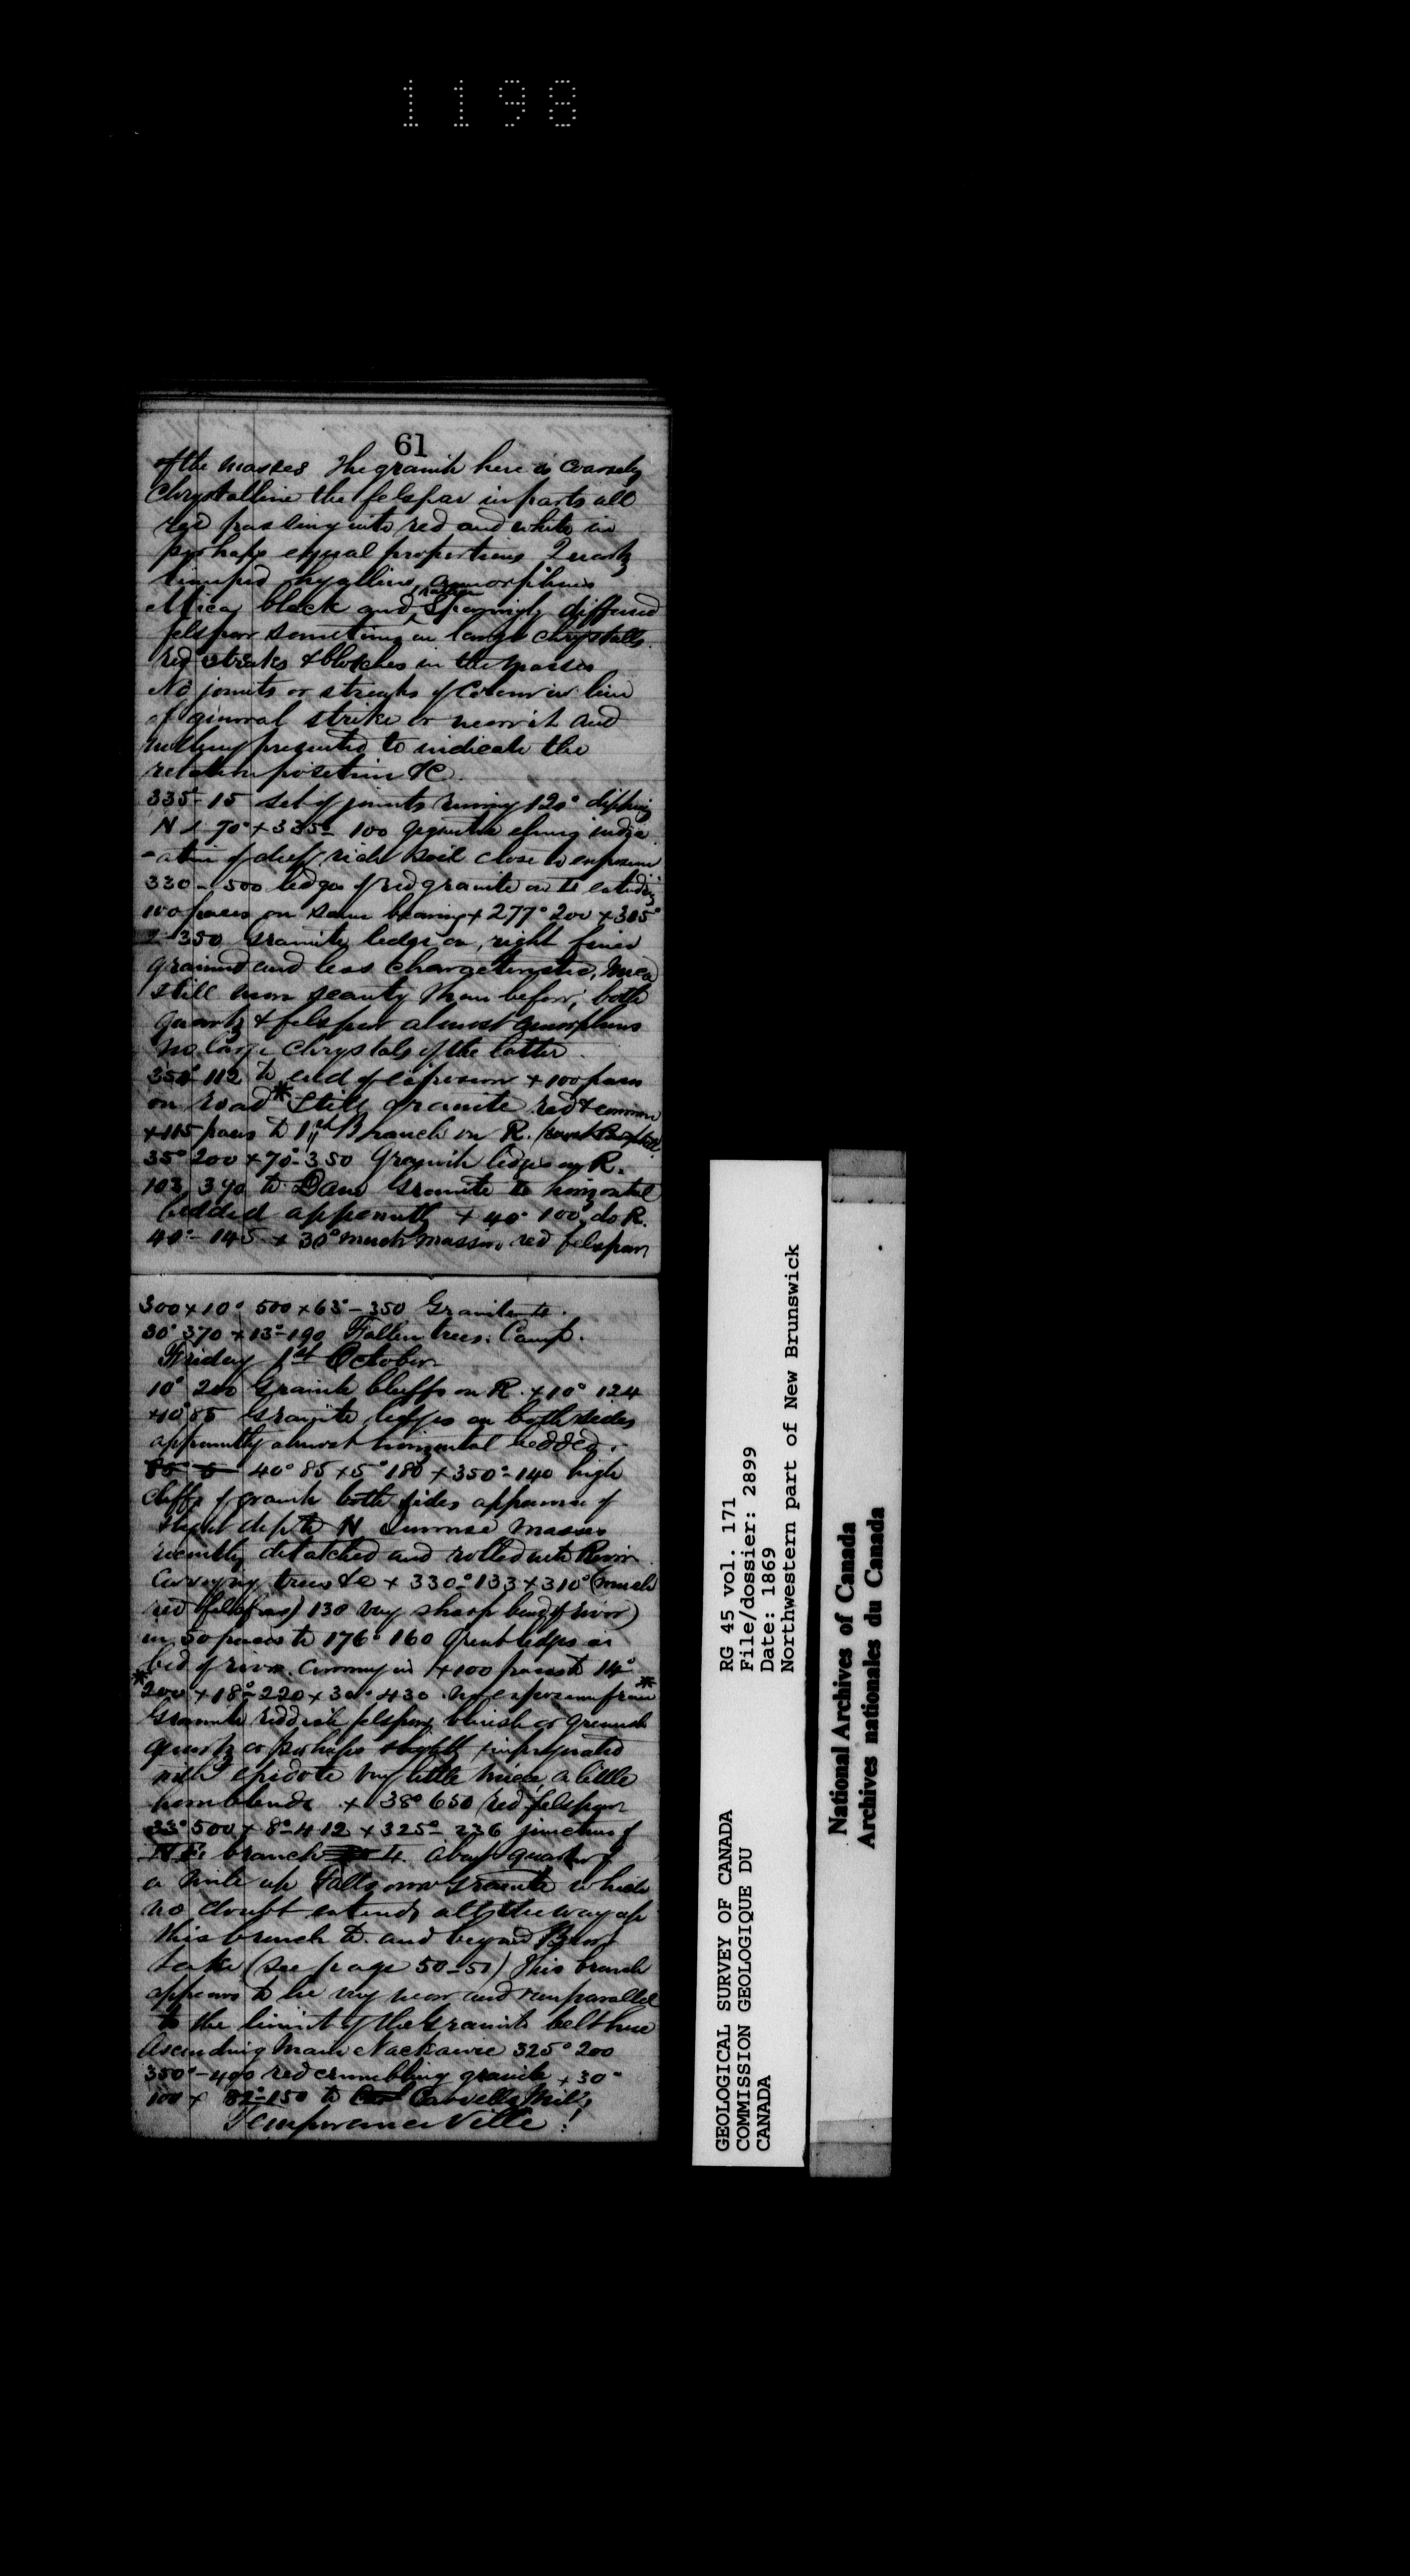 1198
61
of the masses The granite here is coarsely
Chrystalline the felspar in parts all
red passing into red and white in
perhaps equal proportions Quartz
limpid hyalline, amorphous
Mica black and rather sparingly diffused
felspar sometimes in large chrystalls
red streaks & blotches in the masses
No joints or streaks of colour in line
of general strike or near it and
nothing presented to indicate the
relative position &c
335°-15 set of joints running 120° dipping
N 70° + 335° 100 gigantic elms indic
-ation of deep rich soil close to exposure
330-500 ledges of red granite on extending
100 paces on same bearing + 277° 200 + 305°
350 Granite ledge on right finer
grained and less characteristic, mica
still more scanty than before, both
quartz & felspar almost amorphous
no large chrystals of the latter.
350° 112 to end of exposure + 100 paces
on road * Still granite red & common
+ 115 paces to Branch on R.
35° 200 + 70°-350 Granite ledges on R.
103 390 to Dam Granite horizontal
bedded apparently + 40° 100 do R.
40°-145 + 30° much massive red felspar
300 + 10° 500 + 63°-350 Granite
30° 370 + 13°-190 Fallen trees. Camp.
Friday 1st October
10° 200 Granite bluffs on R. + 10° 124
+10° 85 Granite ledges on both sides
apparently almost horizontal bedded.
40° 85 + 5° 180 + 350°-140 high
cliffs of granite both sides appearance of
dip to N immense masses
recently detatched and rolled into River
carrying trees &c + 330°-133 + 310° (much
red felspar) 130 very sharp bend of river)
in 50 paces to 176° 160 Great ledges in
bed of river. + 100 paces to 14°
* 200 + 18°-220 + 30° 430 no exposure from *
Granite reddish felspar bluish or greenish
quartz or perhaps impregnated
with epidote very little mica a little
hornblende + 38° 650 red felspar
33° 500 + 8°-412 + 325°-236 junction of
N E. branch about quarter of
a mile up Falls over Granite which
no doubt extends all the way up
this branch to and beyond
Lake (see page 50-51) This branch
appears to be very near and run parallel
to the limit of the Granite belt here
Ascending Main Nackawic 325° 200
350°-490 red crumbling granite + 30°
100 + 82°-150 to Carvells Mills
Temperance Ville!
GEOLOGICAL SURVEY OF CANADA
COMMISSION GEOLOGIQUE DU
CANADA
RG 45 vol. 171
File/dossier: 2899
Date: 1869
Northwestern part of New Brunswick
National Archives of Canada
Archives nationales du Canada